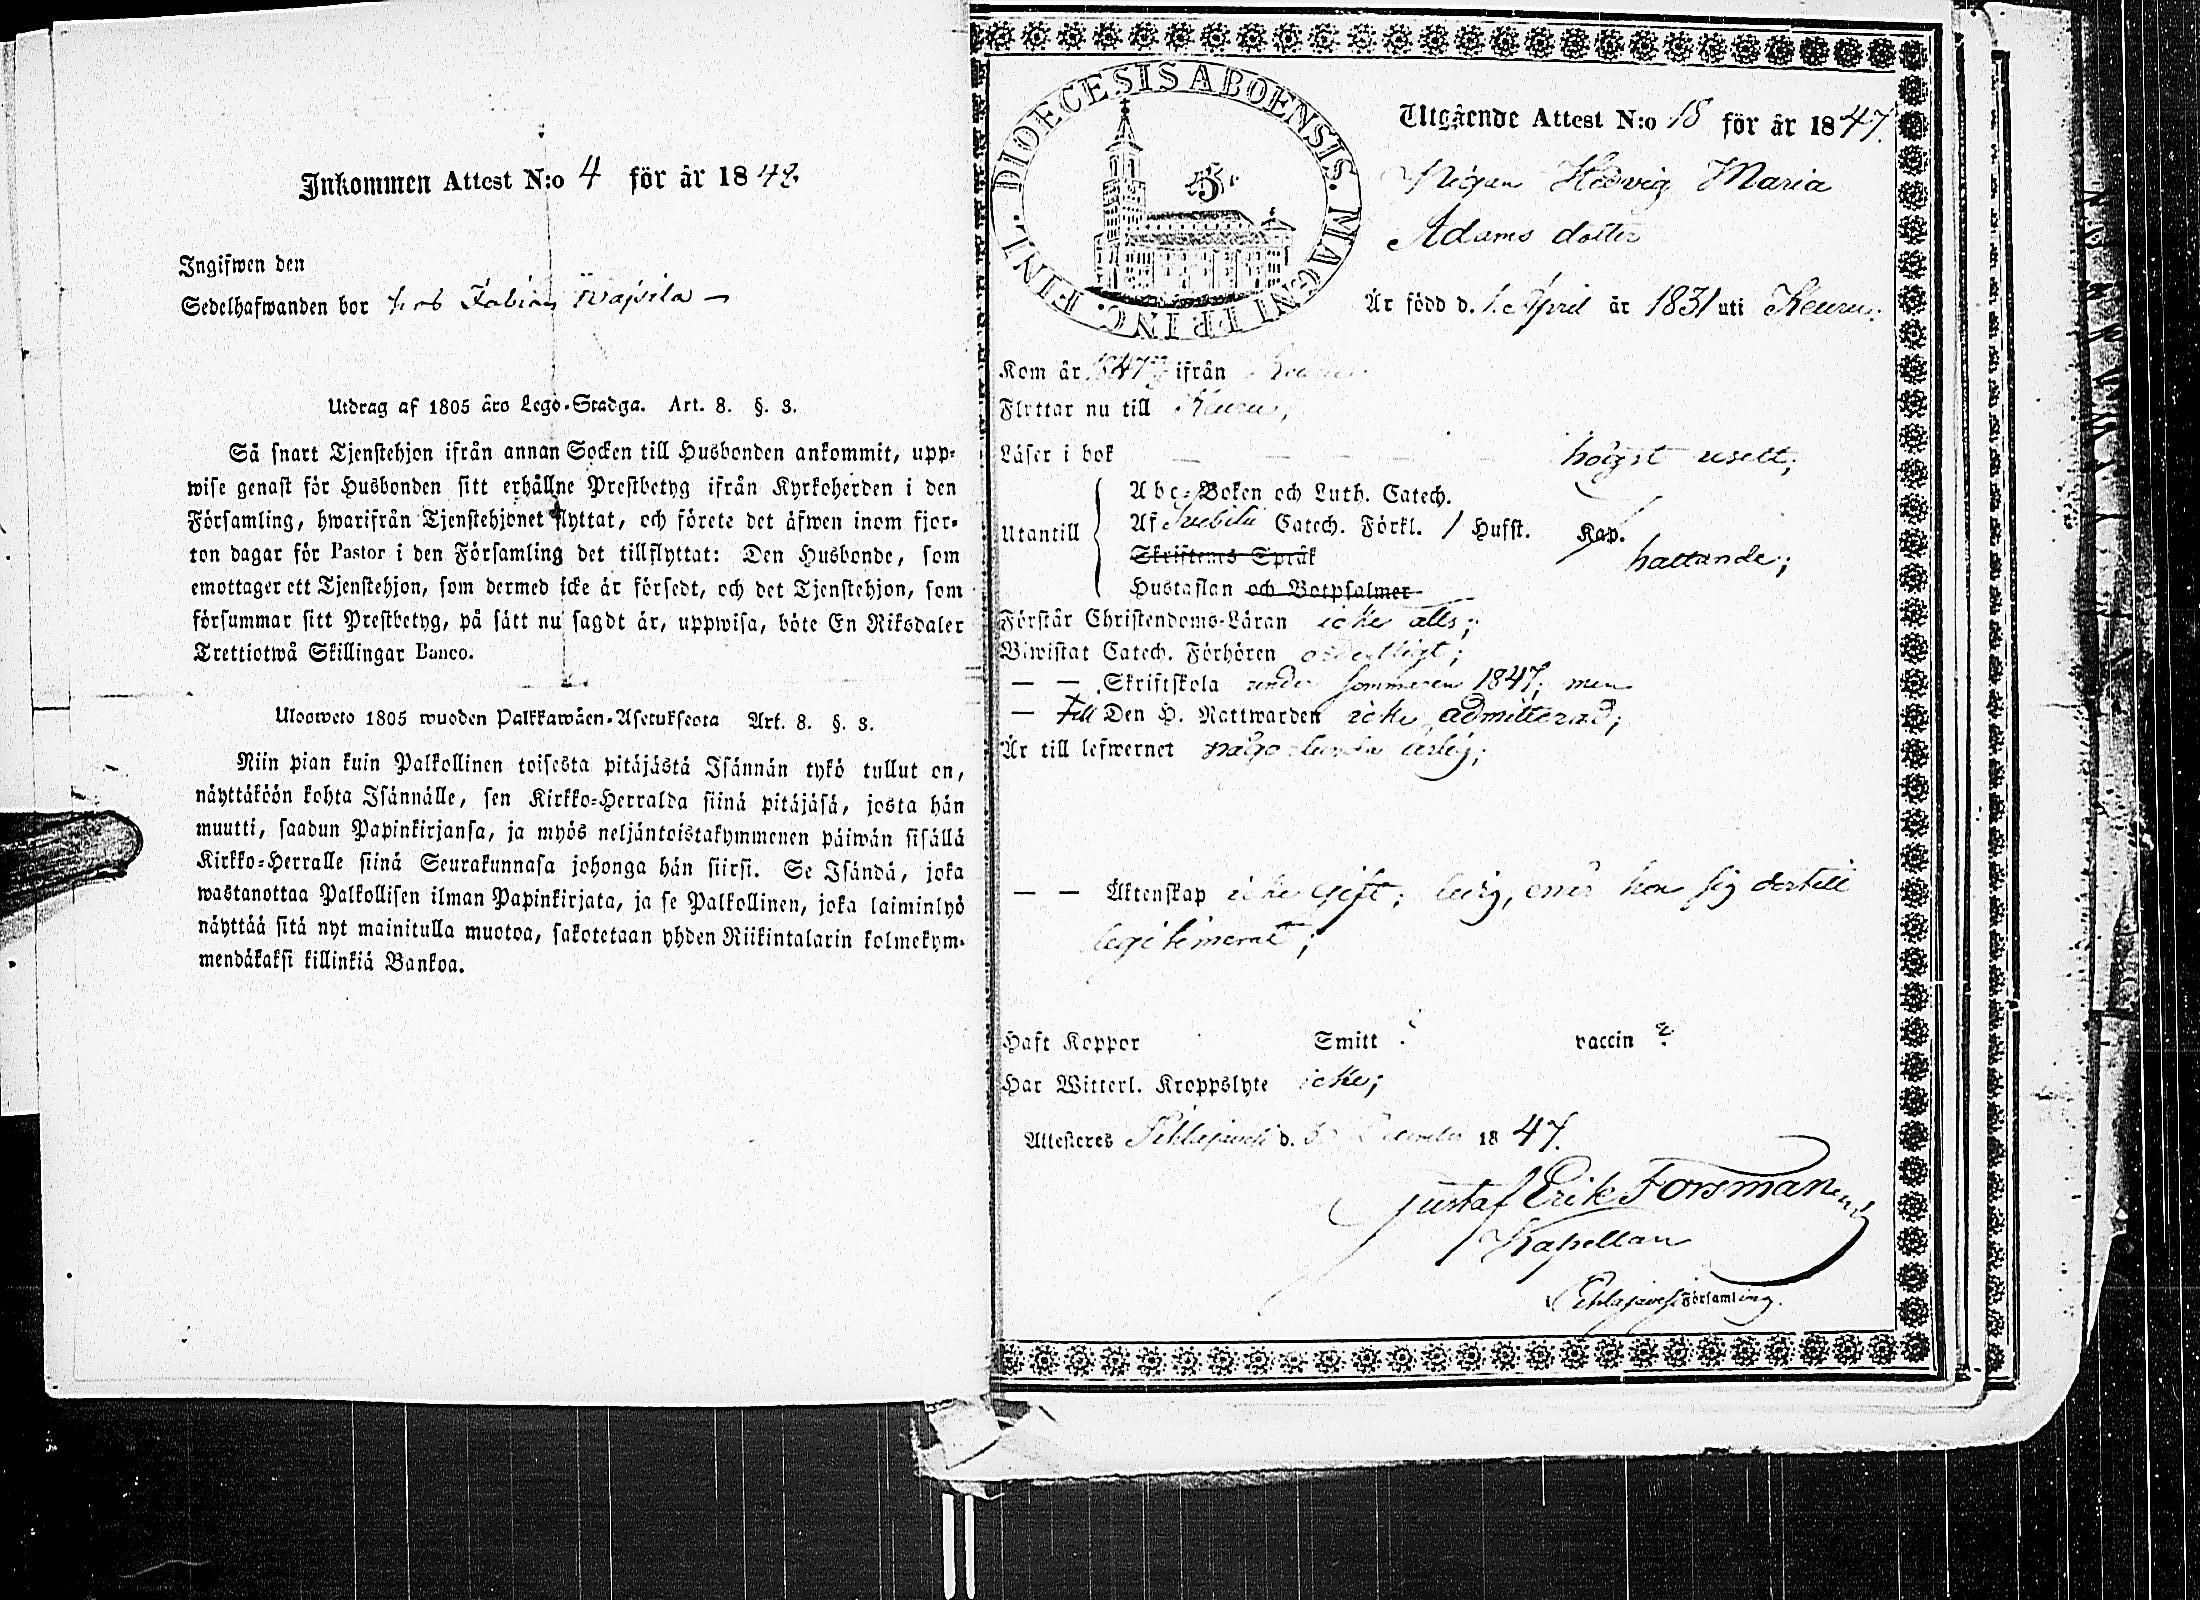 Inkommen Attest N:o 4 för år 1848.
Ingifwen den
Sedelhafwanden bor hos Fabian
Utdrag af 1805 åro Lego-Stadga. Art. 8. §. 3.
Så snart Tjenstehjon ifrån annan Socken till Husbonden ankommit, upp-
wise genast för Husbonden sitt erhållne Prestbetyg ifrån Kyrkoherden i den
Församling, hwarifrån Tjenstehjonet flyttat, och förete det äfwen inom fjor-
ton dagar för Pastor i den Församling det tillflyttat: Den Husbonde, som
emottager ett Tjenstehjon, som dermed icke är försedt, och det Tjenstehjon, som
försummar sitt Prestbetyg, på sätt nu sagdt är, uppwisa, böte En Riksdaler
Trettiotwå Skillingar Banco.
Ulosweto 1805 wuoden Palkkawäen-Asetuksesta Art. 8. §. 3.
Niin pian kuin Palkollinen toisesta pitäjästä Isännän tykö tullut on,
näyttäköön kohta Isännälle, sen Kirkko-Herralda siinä pitäjäsä, josta hän
muutti, saadun Papinkirjansa, ja myös neljäntoistakymmenen päiwän sisällä
Kirkko-Herralle siinä Seurakunnasa johonga hän siirsi. Se Isändä, joka
wastanottaa Palkollisen ilman Papinkirjata, ja se Palkollinen, joka laiminlyö
näyttää sitä nyt mainitulla muotoa, sakotetaan yhden Riikintalarin kolmekym-
mendäkaksi killinkiä Bankoa.
DIOECESIS ABOENSIS. MAGNI PRINC. FINL.
Utgående Attest N:o 18 för år 1847.
Pigan Hedvig Maria
Adams dotter
Är född d. 1. April år 1831 uti Keuru;
Kom år 1847 ifrån Keuru
Flyttar nu till Keuru,
Läser i bok — — — — högst uselt;
Utantill
Abc-Boken och Luth. Catech.
Af Svebilii Catech. Förkl. 1 Hufst. Kap.
Skriftenes Språk hattande;
Hustaflan och Botpsalmer
Förstår Christendoms-Läran icke alls;
Biwistat Catech. Förhören ordentligt;
— — Skriftskola under sommaren 1847; men
— Till Den H. Nattwarden icke admitterad;
Är till lefwernet någorlunda ärlig;
— — Äktenskap icke gift; ledig, om hon sig dertill
legitimerat;
Haft Koppor Smitt ? vaccin ?
Har Witterl. Kroppslyte icke;
Attesteres Pihlajavesi d. December 1847.
Gustaf Erik Forsman
Kapellan
i Pihlajavesi Församling.